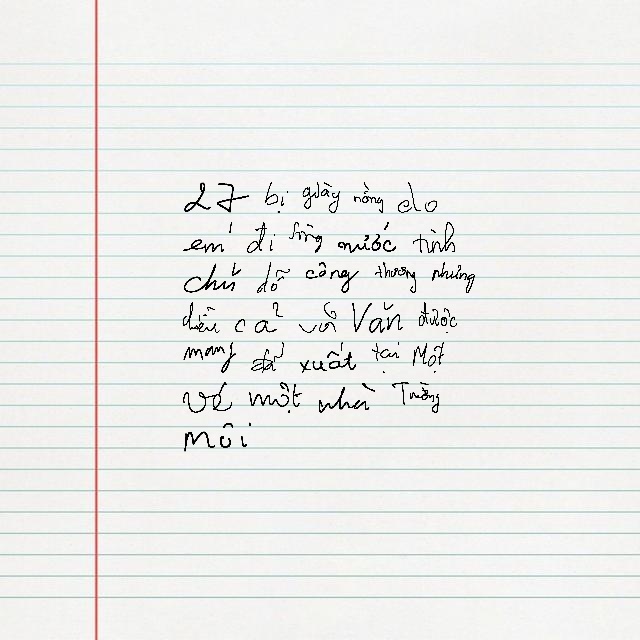 27 bị giày nồng do
em đi sông nước tình
chứ dỗ công thương nhưng
điều cả với Văn được
mang đề xuất tại Một
về một nhà Trường
môi